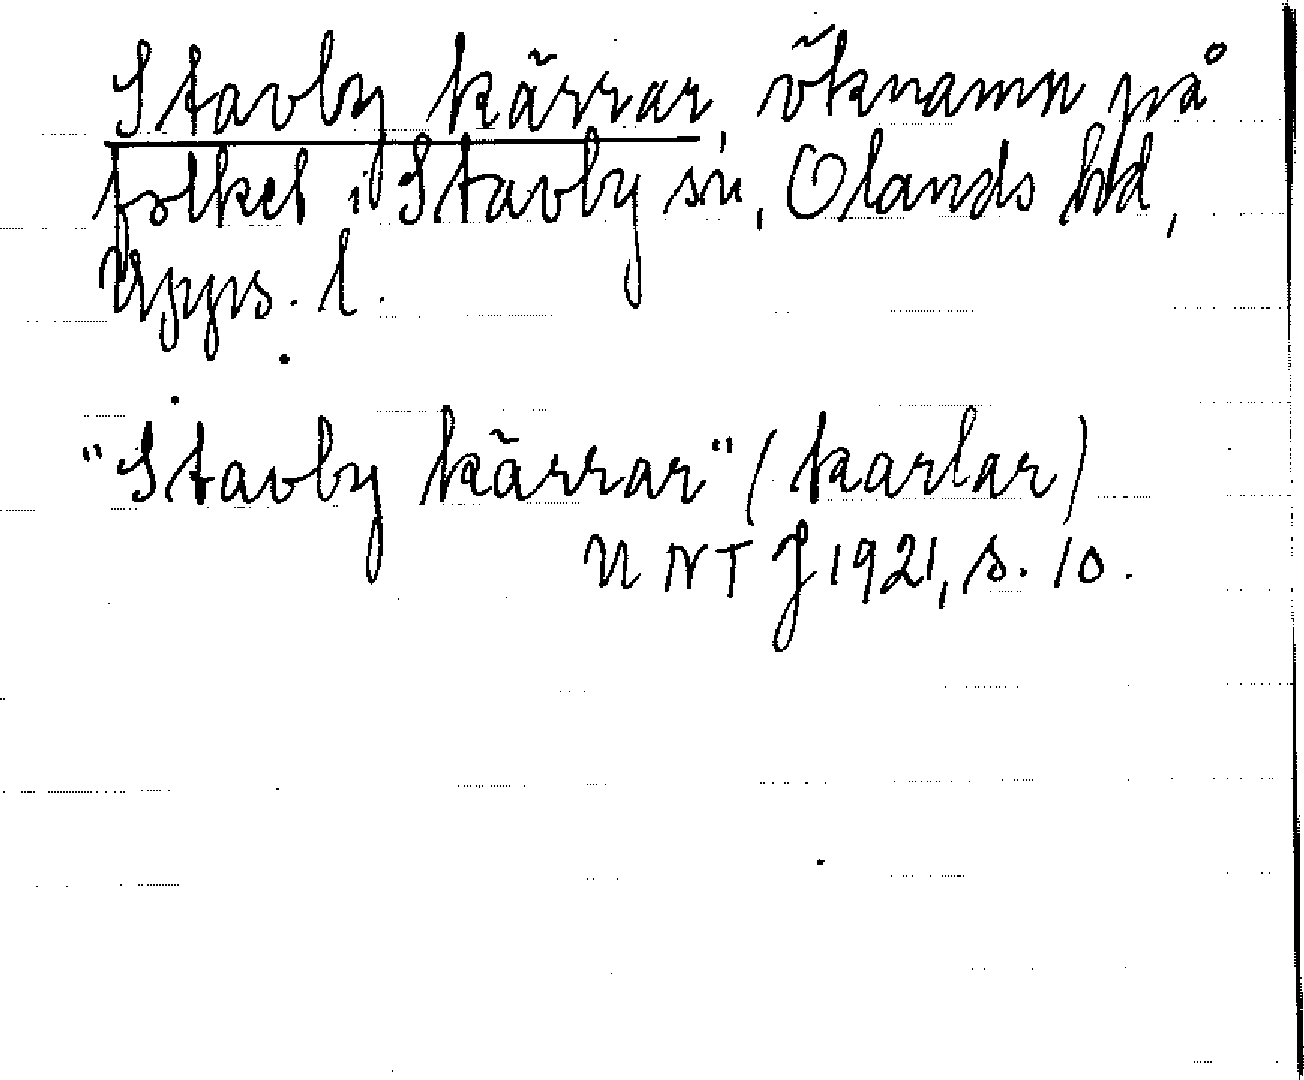 Stavby kärrar, öknamn på
folket i Stavby sn, Olands hd,
Upps. l.
"Stavby kärrar" (karlar)
UNT J 1921, s. 10.